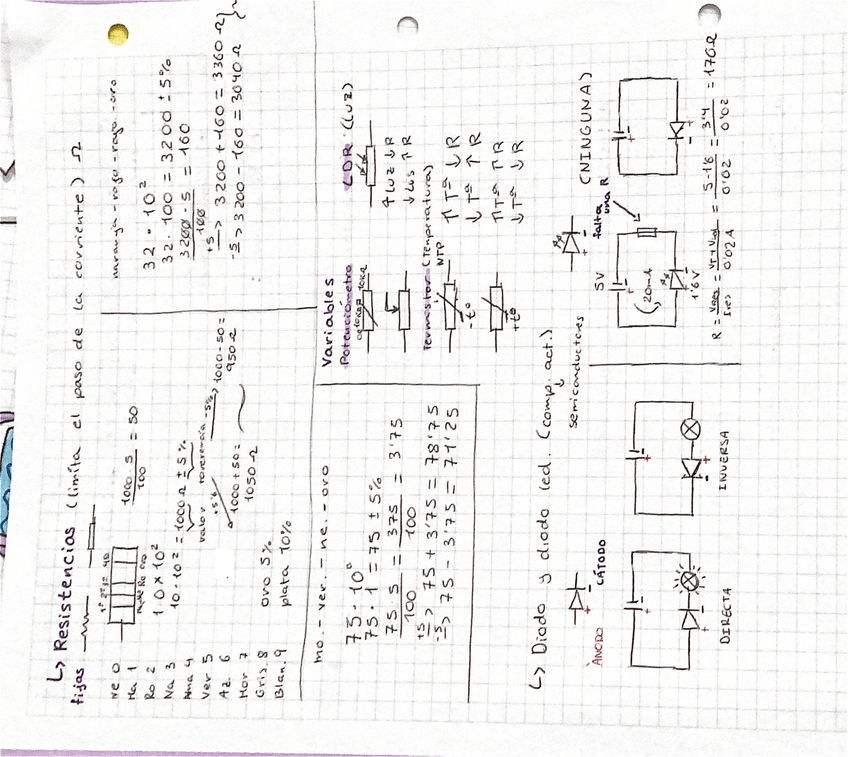 ↳ Resistencias (limita el paso de la corriente) Ω
fijas
Ne 0
Ma 1
Ro 2
Na 3
Ama 4
Ver 5
Az. 6
Mor 7
Gris. 8
Blan. 9
1º 2º 3º 4º
Ma Ne Ro oro
10 × 10²
10 · 10² = 1000 Ω ± 5%
valor tolerancia
1000 · 5 / 100 = 50
+5%
1000 + 50 =
1050 Ω
-5%
1000 - 50 =
950 Ω
oro 5%
plata 10%
naranja - rojo - rojo - oro
32 · 10²
32 · 100 = 3200 ± 5%
3200 · 5 / 100 = 160
+5 → 3200 + 160 = 3360 Ω
-5 → 3200 - 160 = 3040 Ω
mo. - ver. - ne. - oro
75 · 10⁰
75 · 1 = 75 ± 5%
75 · 5 / 100 = 375 / 100 = 3'75
+5 → 75 + 3'75 = 78'75
-5 → 75 - 3'75 = 71'25
Variables
Potenciometro
LDR (luz)
↑ luz ↓ R
↓ luz ↑ R
Termistor (Temperatura)
NTP
-tº
↑ Tª ↓ R
↓ Tª ↑ R
+tº
↑ Tª ↑ R
↓ Tª ↓ R
↳ Diodo y diodo led. (comp. act.)
semiconductores
ÁNODO
CÁTODO
DIRECTA
INVERSA
falta
una R
(NINGUNA)
5V
20mA
1'6V
R = = = 5 - 1'6 / 0'02 = 3'4 / 0'02 = 170Ω